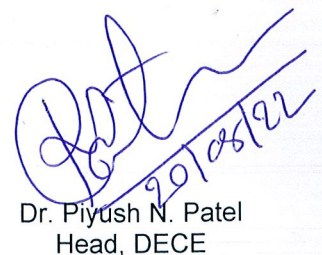 20/08/22
Dr. Piyush N. Patel
Head, DECE